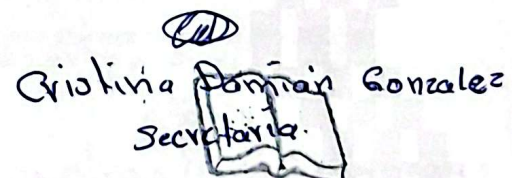 Cristina Damian Gonzalez
Secretaria.